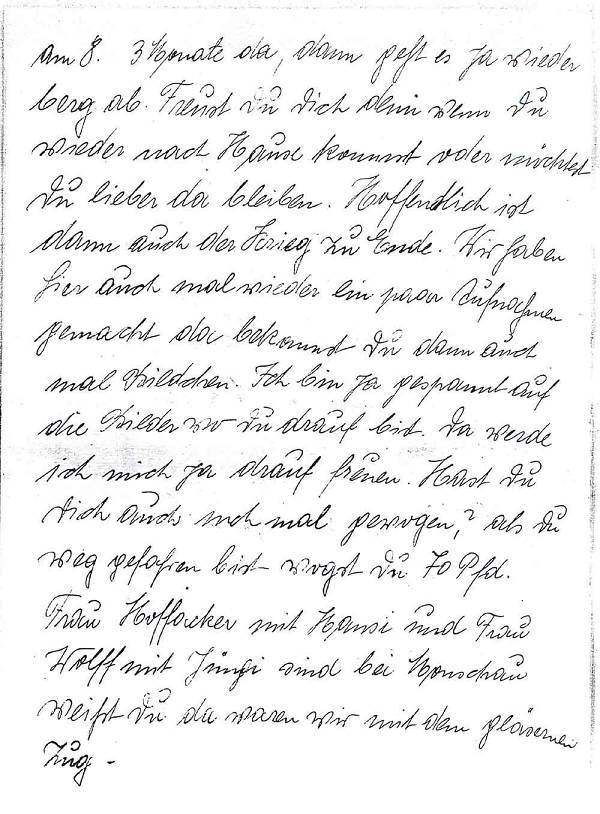 am 8. 3 Monate da, dann geht es ja wieder
berg ab. Freust Du Dich denn wenn Du
wieder nach Hause kommst oder möchtest
Du lieber da bleiben. Hoffentlich ist
dann auch der Krieg zu Ende. Wir haben
hier auch mal wieder ein paar Aufnahmen
gemacht da bekommst Du dann auch
mal Bildchen. Ich bin ja gespannt auf
die Bilder wo Du drauf bist. Da werde
ich mich ja drauf freuen. Hast Du
Dich auch noch mal gewogen, ? als Du
weg gefahren bist wogst Du 70 Pfd.
Frau Hoffacker mit Hansi und Frau
Wolff mit Jüngi sind bei Monschau
weißt Du da waren wir mit dem gläsernen
Zug -